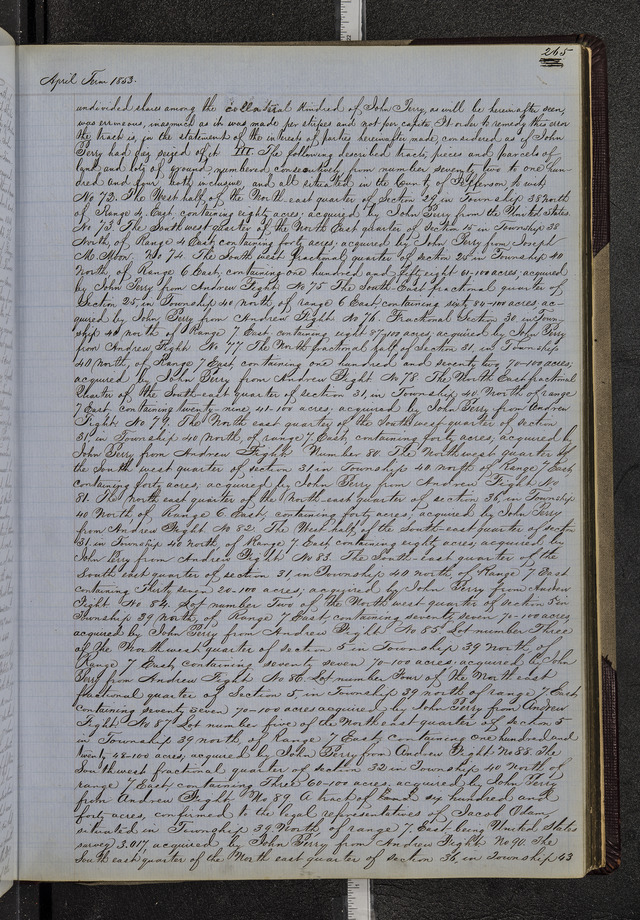 265
April Term 1853.
undivided shares among the collateral kindred of John Perry, as will be hereinafter seen,
was erroneous, inasmuch as it was made per stirpes and not per capita. In order to remedy this error
the tract is, in the statements of the interests of parties hereinafter made, considered as if John
Perry had died seized of it. III. The following described tracts, pieces and parcels of
land and lots of ground, numbered consecutively from number seventy two to one hun-
dred and four both inclusive, and all situated in the County of Jefferson to wit,
No 72. The West half of the North east quarter of Section 29 in Township 38 North
of Range 4 East, containing eighty acres; acquired by John Perry from the United States
No 73. The South west quarter of the North East quarter of Section 15 in Township 38
North, of Range 4 East, containing forty acres, acquired by John Perry from Joseph
M. No. 74. The South west fractional quarter of section 25 in Township 40
North, of Range 6 East, containing one hundred and fifty eight 61-100 acres, acquired
by John Perry from Andrew Fight No 75 The South East fractional quarter of
Section 25, in Township 40 North, of range 6 East, containing sixty 84-100 acres ac-
quired by John Perry from Andrew Fight No 76. Fractional Section 30 in Town-
ship 40 north of Range 7 East, containing eight 87-100 acres acquired by John Perry
from Andrew Fight No 77 The North fractional half of Section 31, in Township
40 North, of Range 7 East, containing one hundred and seventy two 70-100 acres,
acquired by John Perry from Andrew Fight No 78 The North East fractional
Quarter of the South-east quarter of section 31, in Township 40 North of range
7 East, containing twenty-nine 41-100 acres; acquired by John Perry from Andrew
Fight No 79. The North east quarter of the South west quarter of section
31 in Township 40 North, of range 7 East, containing forty acres, acquired by
John Perry from Andrew Fight Number 80. The North west quarter of
the South west quarter of section 31 in Township 40 north of Range 7 East,
containing forty acres, acquired by John Perry from Andrew Fight No
81. The North east quarter of the North east quarter of section 36, in Township
40 North, of Range 6 East, containing forty acres; acquired by John Perry
from Andrew Fight No 82, The West half of the South east quarter of section
31 in Township 40 north, of Range 7 East containing eighty acres; acquired by
John Perry from Andrew Fight No 83. The South east quarter of the
South east quarter of section 31, in Township 40 north of Range 7 East
containing Thirty seven 20-100 acres; acquired by John Perry from Andrew
Fight No 84. Lot number Two of the North west quarter of section 5 in
Township 39 North, of Range 7 East, containing seventy seven 70-100 acres,
acquired by John Perry from Andrew Fight No 85. Lot number Three
of the North west quarter of section 5 in Township 39 North, of
Range 7 East, containing seventy seven 70-100 acres; acquired by John
Perry from Andrew Fight No 86. Lot number Four of the North east
fractional quarter of Section 5, in Township 39 north of range 7 East
containing seventy seven 70-100 acres acquired by John Perry from Andrew
Fight No 87 Lot number five of the North east quarter of section 5
in Township 39 north, of Range 7 East, containing one hundred and
twenty 48-100 acres, acquired by John Perry from Andrew Fight No 88. The
South west fractional quarter of section 32 in Township 40 North of
range 7 East, containing Three 60-100 acres, acquired by John Perry
from Andrew Fight No 89. A tract of Land six hundred and
forty acres, confirmed to the legal representatives of Jacob Odam
situated in Township 39 North, of range 7. East being United States
survey 3.017, acquired by John Perry from Andrew Fight No 90. The
South east quarter of the North east quarter of section 36, in Township 43